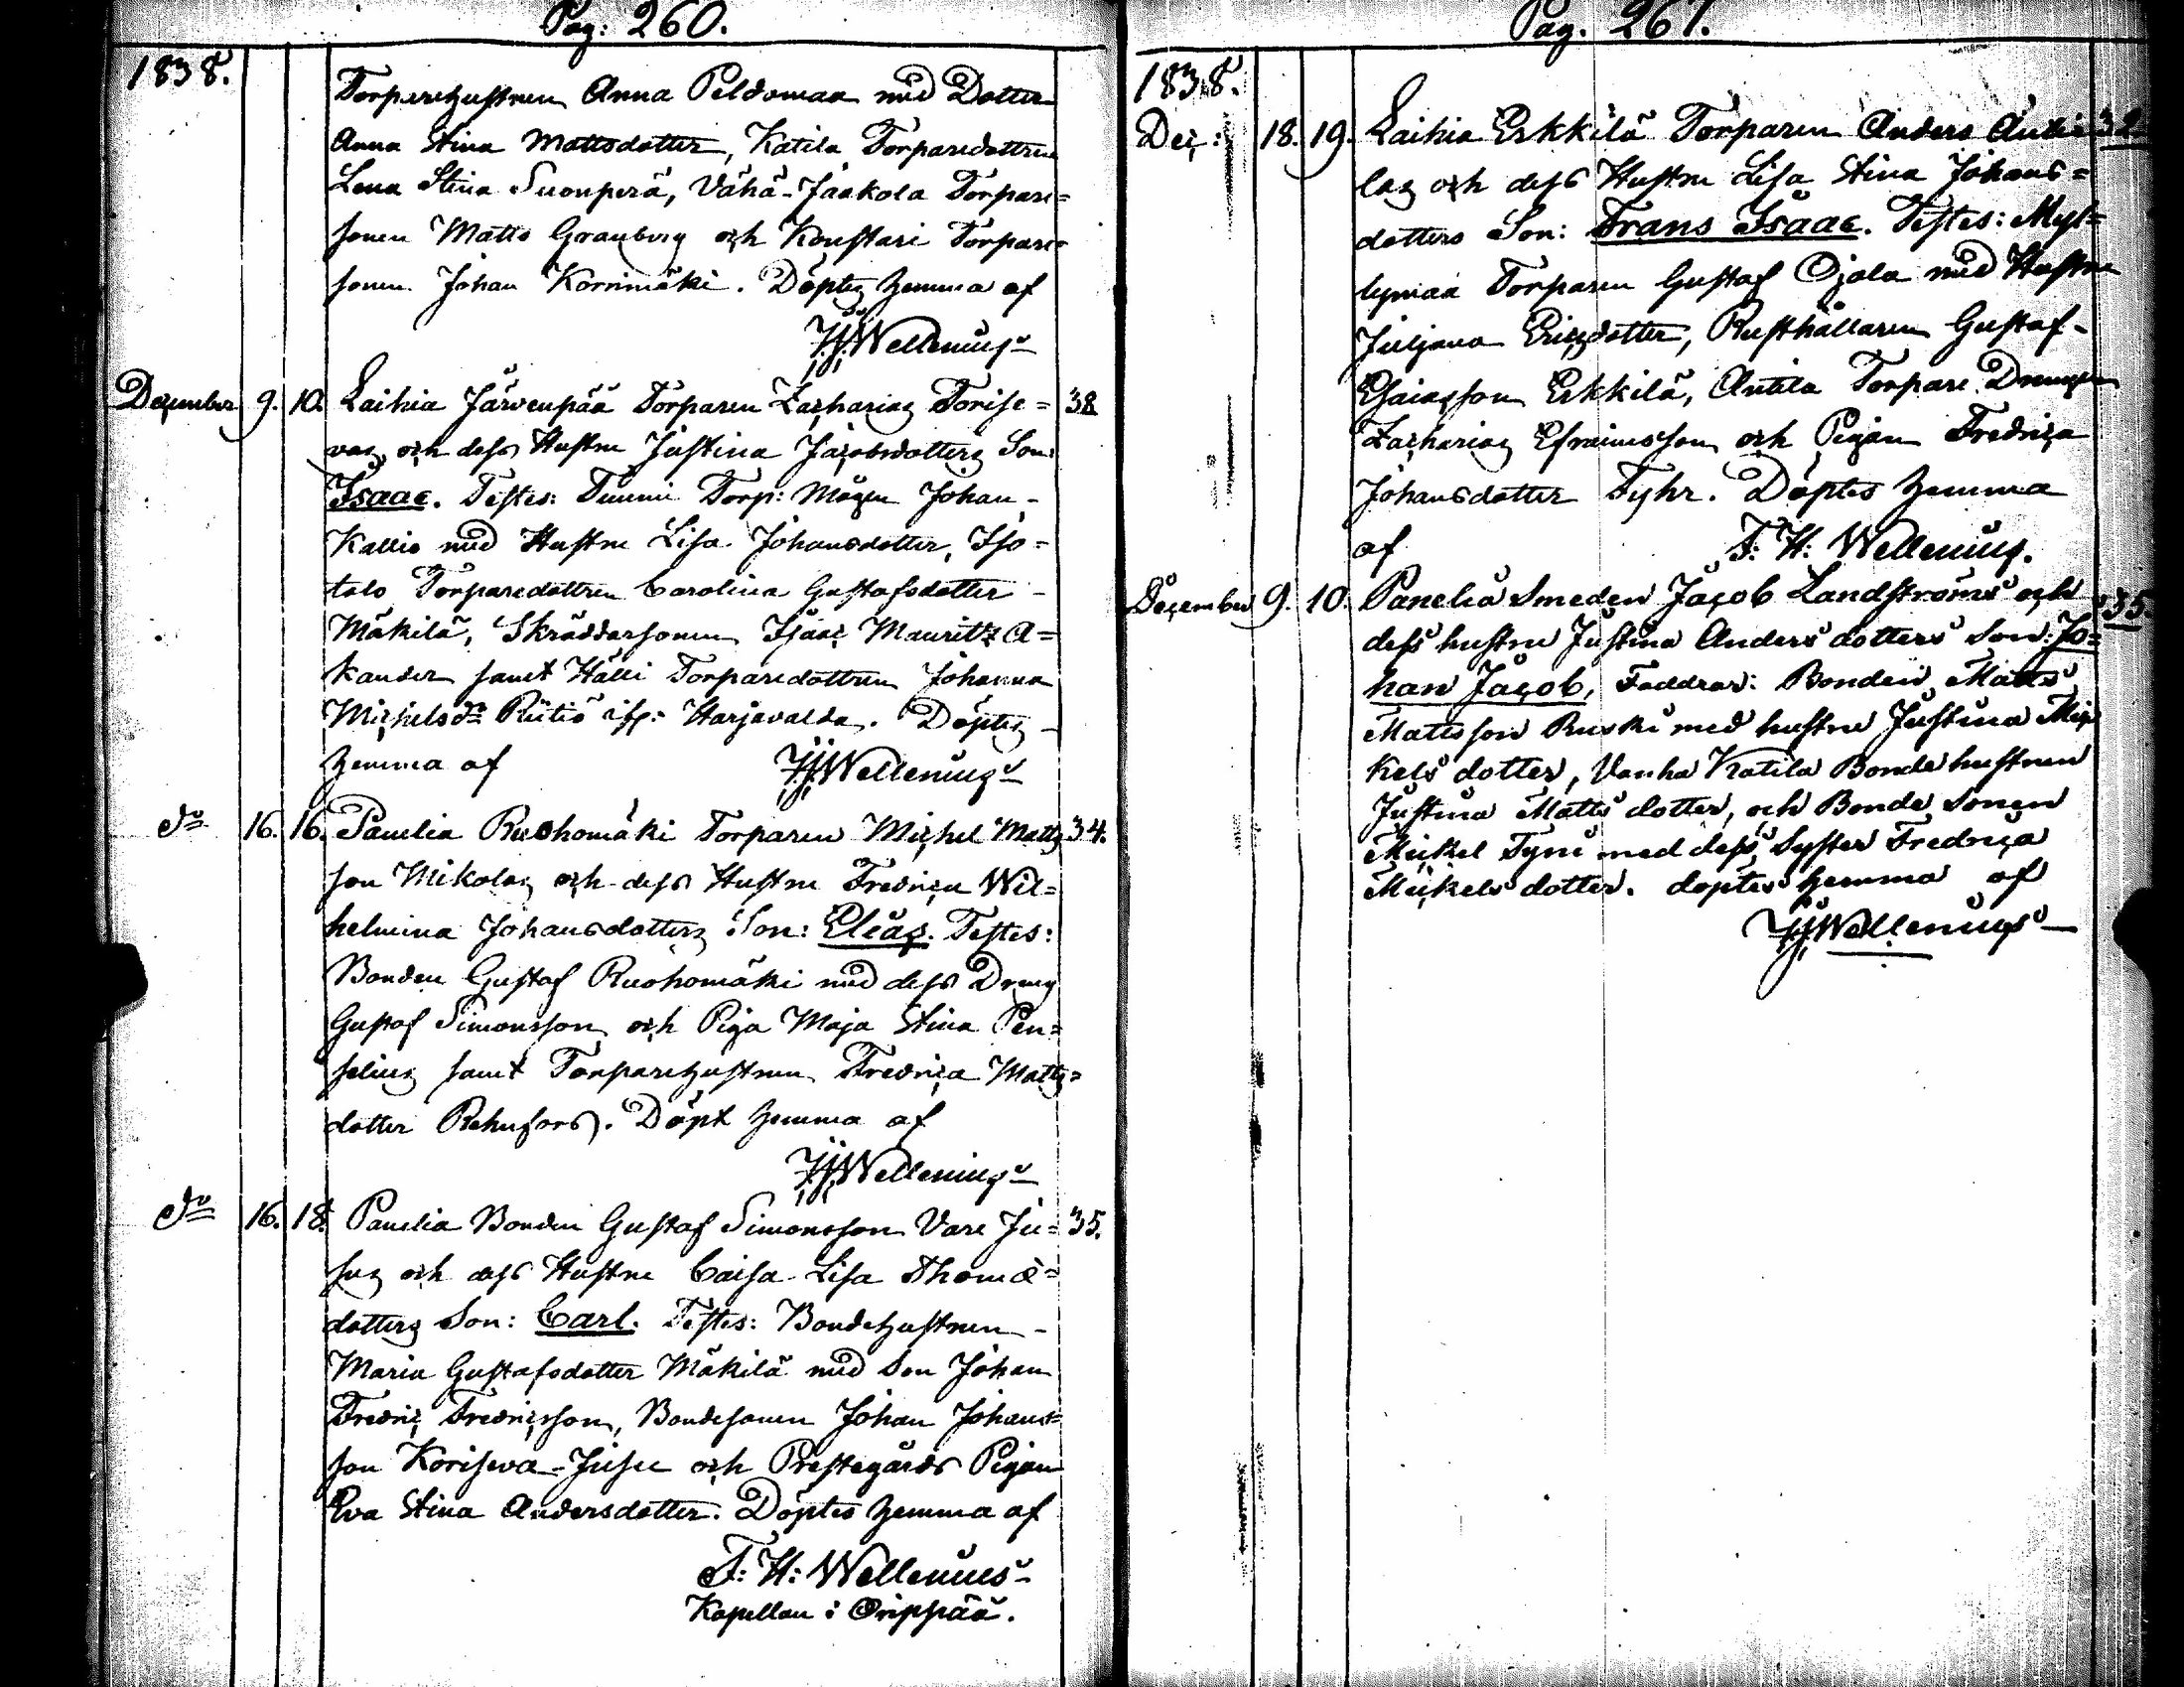 Pag: 260.
1838.
Torparehustrun Anna Peldomaa med Dotter
Anna Stina Mattsdotter, Katila Torparedottren
Lena Stina Suonperä, Vähä-Jaakola Torpare=
sonen Matts Granberg och Konstari Torpare=
sonen Johan Kornimäki. Döptes hemma af
F.H. Wellenius
December 9. 10. Laihia Järvenpää Torparen Zacharias Torise= 38
vas och dess Hustru Justina Jacobsdotters Son:
Isaac. Testes: Tummi Torp: Mågen Johan
Kallio med Hustru Lisa Johansdotter, Iso=
talo Torparedottren Carolina Gustafsdotter
Mäkilä, Skräddarsonen Isaac Mauritz A=
kander samt Hälli Torparedottren Johanna
Michelsdr Riitiö i Harjavalda. Döptes
hemma af F.H. Wellenius
do 16. 16. Panelia Ruohomäki Torparen Michel Matts 34.
son Mikolas och dess Hustru Fredrica Wil=
helmina Johansdotters Son: Elias. Testes:
Bonden Gustaf Ruohomäki med dess Dreng
Gustaf Simonsson och Piga Maja Stina Pen=
selius samt Torparehustrun Fredrica Matts=
dotter Rehnfors. Döpt hemma af
F.H. Wellenius
do 16. 18. Panelia Bonden Gustaf Simonsson Vare Ju= 35.
sus och dess Hustru Caisa Lisa Thomæ=
dotters Son: Carl. Testes: Bondehustrun
Maria Gustafsdotter Mäkilä med Son Johan
Fredric Fredricsson, Bondesonen Johan Johans=
son Koriseva-Jusu och Prestegårds Pigan
Eva Stina Andersdotter. Döptes hemma af
F: H: Wellenius
Kapellan i Orippää.
Pag. 261.
1838.
Dec: 18. 19. Laihia Erkkilä Torparen Anders Anti= 32
las och dess Hustru Lisa Stina Johans=
dotters Son: Frans Isaac. Testes: Myl=
lymaa Torparen Gustaf Ojala med Hustru
Juljana Ericsdotter, Rusthållaren Gustaf
Esaiasson Erkkilä, Antila Torpare Drengen
Zacharias Efraimsson och Pigan Fredrica
Johansdotter Fyhr. Döptes hemma
af F: H: Wellenius.
December 9. 10. Panelia Smeden Jacob Landströms och 35
dess hustru Justina Anders dotters Son: Jo=
han Jacob, Faddrar: Bonden Matts
Mattsson Ruski med hustru Justina Mic
kels dotter, Vanha Katila Bonde hustrun
Justina Matts dotter, och Bonde Sonen
Mickel Tyni med dess Syster Fredrica
Mickels dotter. döptes hemma af
F.H. Wellenius